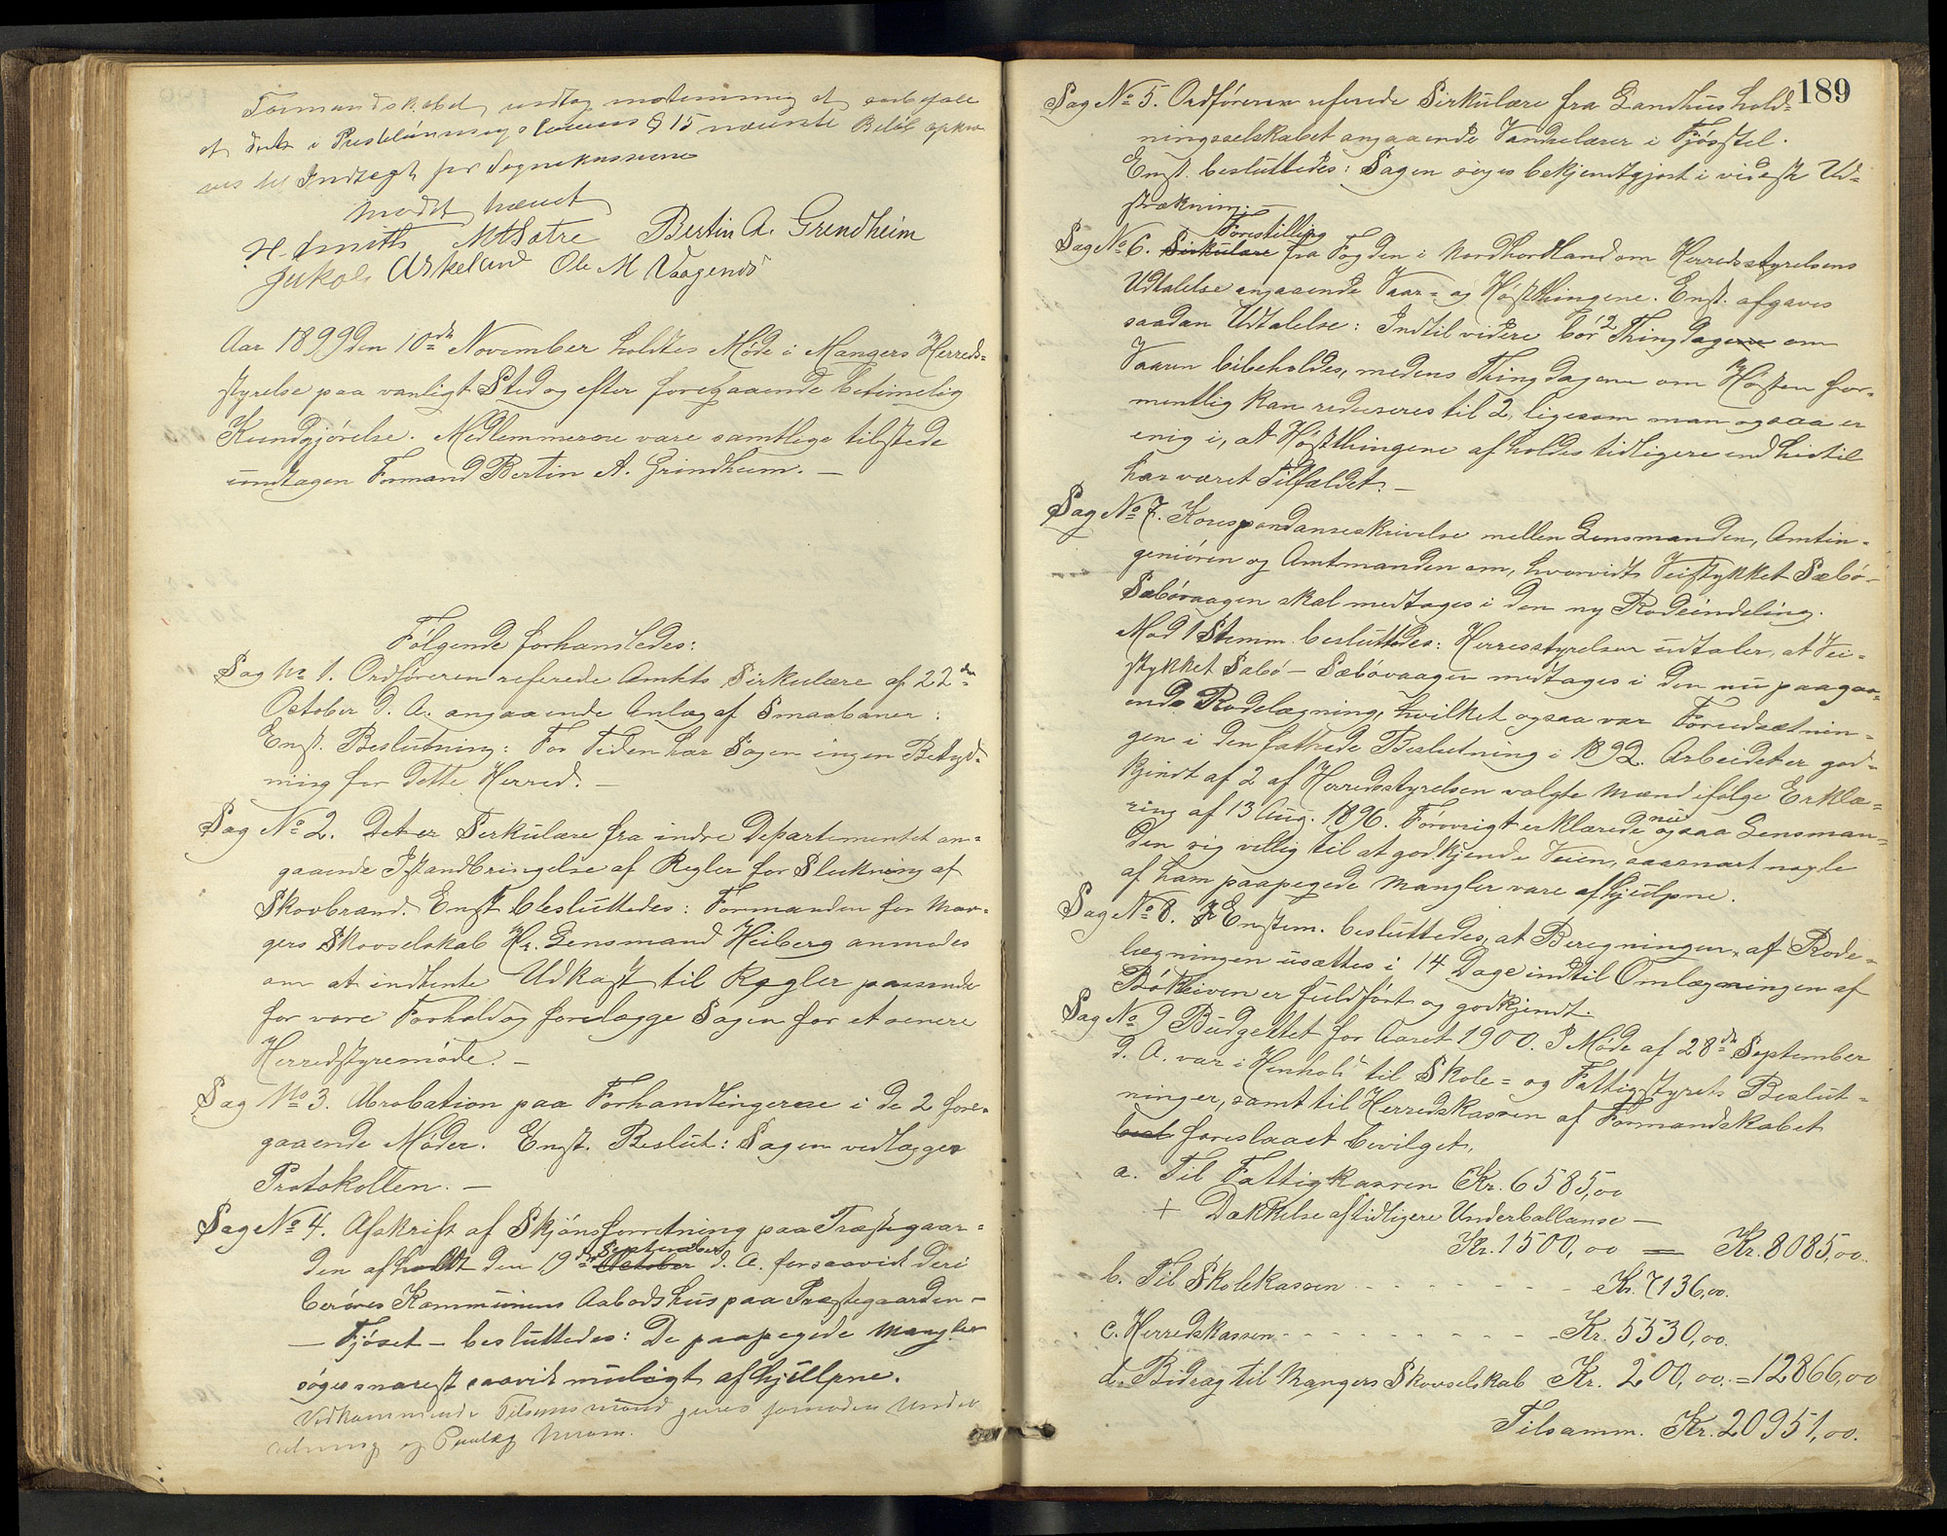 Formandskabet vedtog mod stemme at anbefale
at det i Presteløningslovens § 15 nævnte Beløb opkræ
ves til Indtægt for Sognekassene
Mødet hævet
H. Smith M Hsætre Bertin A. Grendheim
Jakob Askeland Ole M Vaagenes
Aar 1899 den 10de November holdtes Møde i Mangers Herreds-
styrelse paa vanligt Sted og efter foregaaende betimelig
Kundgjørelse. Medlemmerne vare samtlige tilstede
undtagen Formand Bertin A. Grindheim. —
Følgende forhandledes:
Sag No 1. Ordføreren referede Amtets Sirkulære af 22de
October d. A. angaaende Anlæg af Smaabaner:
Enst. Beslutning: For Tiden har Sagen ingen Betyd-
ning for dette Herred. —
Sag No 2. Det er Serkulære fra indre Departementet an-
gaaende Istandbringelse af Regler for Slukning af
Skovbrand. Enst besluttedes: Formanden for Man-
gers Skovselskab Hr. Lensmand Heiberg anmodes
om at indhente Udkast til Regler passende
for vore Forhold og forelægge Sagen for et senere
Herredstyremøde. —
Sag No 3. Abrobation paa Forhandlingerne i de 2 fore-
gaaende Møder. Enst. Beslut: Sagen vedlægges
Protokollen. —
Sag No 4. Afskrift af Skjønsforretning paa Præstegaar-
den afholdt den 19de October September d. A. forsaavidt deri
berøres Kommunens Aabodshus paa Præstegaarden —
— Fjøset — besluttedes: De paapegede Mangler
søges snarest saavidt muligt afhjulpne.
Vedkommende Tilsynsmænd gives fornøden Under
retning og Paalæg herom.
189
Sag No 5. Ordføreren referede Sirkulære fra Landhushold-
ningsselskabet angaaende Vandrelærer i Fjøsstel.
Enst. besluttedes: Sagen søges bekjendtgjort i videste Ud-
strækning. —
Forestilling
Sag No 6. Sirkulære fra Fogden i Nordhordland om Herredsstyrelsens
Udtalelse angaaende Vaar- og Høstthingene. Enst. afgaves
saadan Udtalelse: Indtil videre bør 2 Thingdagene om
Vaaren bibeholdes, medens Thingdagene om Høsten for-
mentlig kan reduseres til 2, ligesom man ogsaa er
enig i, at Høstthingene afholdes tidligere end hidtil
har været Tilfældet. —
Sag No 7. Korespondanseskrivelse mellen Lensmanden, Amtin-
geniøren og Amtmanden om, hvorvidt Veistykket Sæbø —
Sæbøvaagen skal medtages i den ny Rodeindeling.
Mod 1 Stemm. besluttedes: Herresstyrelsen udtaler, at Vei-
stykket Sæbø — Sæbøvaagen medtages i den nu paagaa-
ende Rodelægning, hvilket ogsaa var Forudsætnin-
gen i den fattede Beslutning i 1892. Arbeidet er god-
kjendt af 2 af Herredsstyrelsen valgte Mænd ifølge Erklæ-
ring af 13 Aug. 1896. Forøvrigt erklærede nu ogsaa Lensman-
den sig villig til at godkjende Veien, saasnart nogle
af ham paapegede Mangler vare afhjulpne.
Sag No 8. Enstem. besluttedes, at Beregningen af Rode-
lægningen usættes i 14 Dage indtil Omlægningen af
Bøkleiven er fuldført og godkjendt.
Sag No 9 Budgettet for Aaret 1900. I Møde af 28de September
d. A. var i Henhold til Skole- og Fattigstyrets Beslut-
ninger, samt til Herredskassen af Formandskabet
besl foreslaaet bevilget.
a. Til Fattigkassen Kr. 6585,00
+ Dækkelse af tidligere Underballanse —
Kr. 1500,00 = Kr. 8085,00.
b. Til Skolekassen - - - - - - - Kr. 7136,00.
c. Herredskassen - - - - - - - - Kr. 5530,00.
d. Bidrag til Mangers Skovselskab Kr. 200,00. = 12866,00
Tilsamm. Kr. 20951,00.